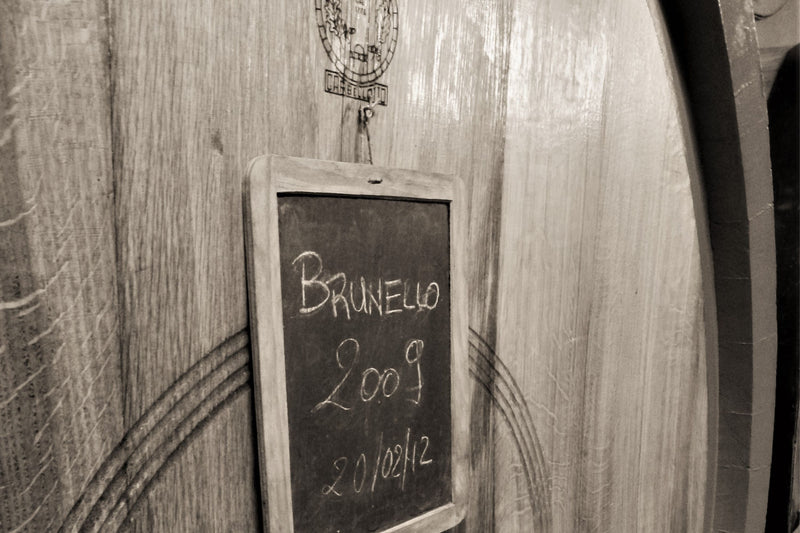 BRUNELLO
2009
20/02/12